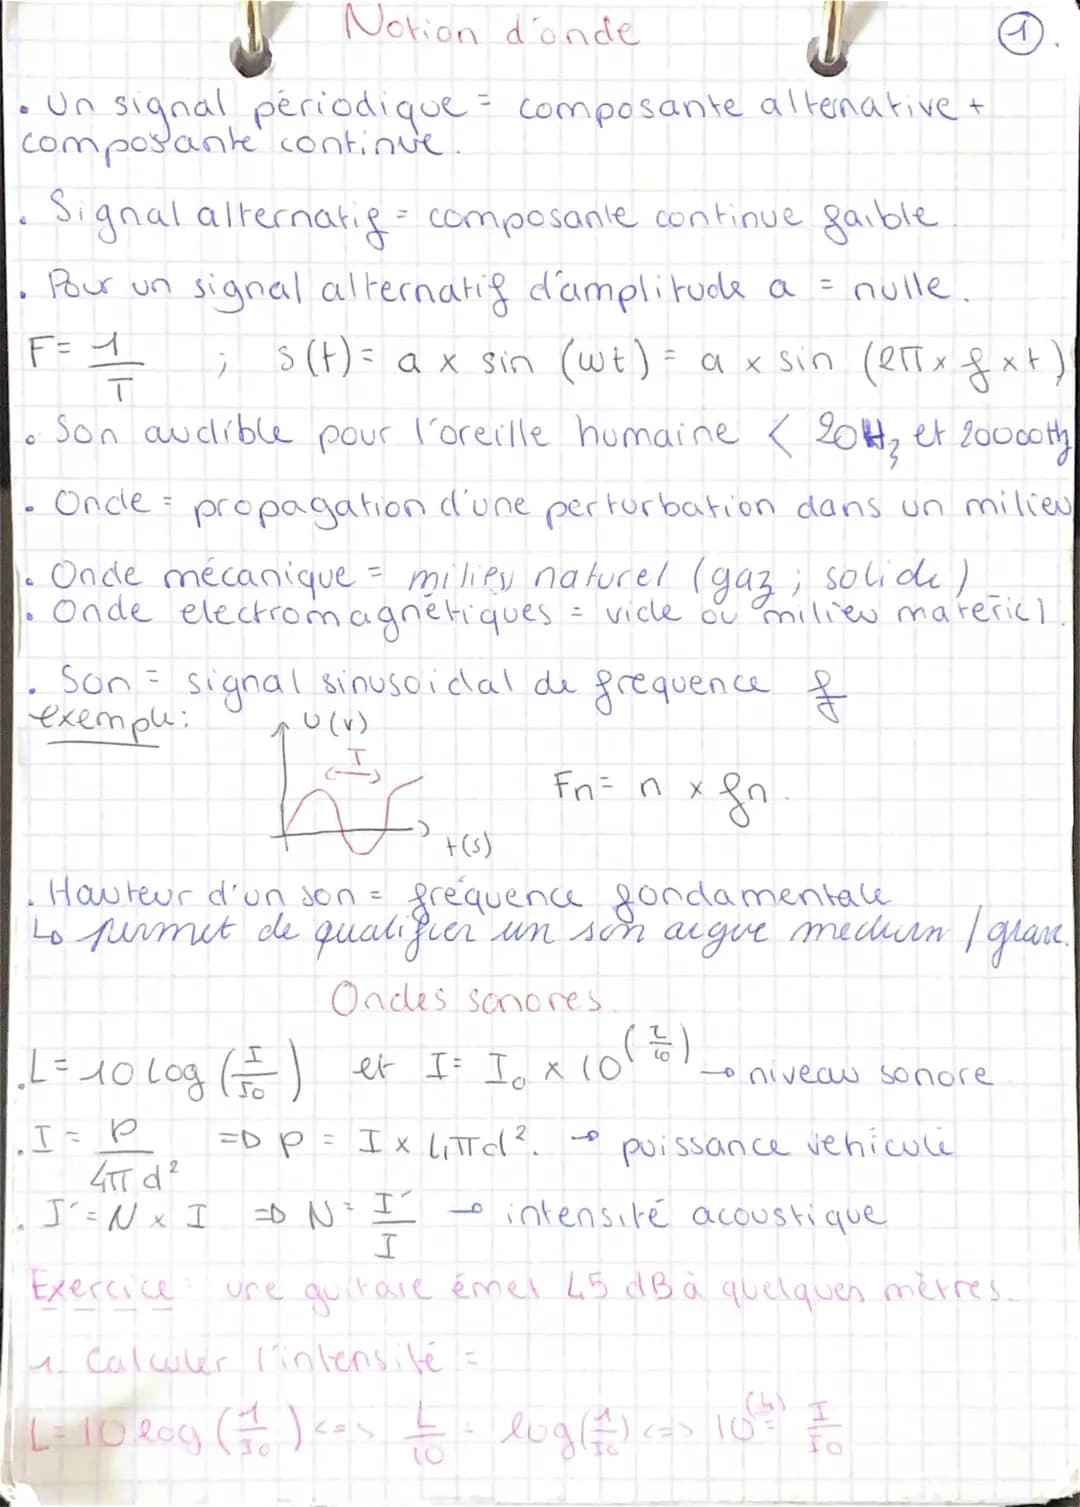 Notion d'onde
1.
• Un signal périodique = composante alternative +
composante continue.
• Signal alternatif = composante continue faible.
• Pour un signal alternatif d'amplitude a = nulle.
F = 1/T ; s(t) = a x sin (wt) = a x sin (2π x f x t)
• Son audible pour l'oreille humaine < 20Hz et 20000Hz
• Onde = propagation d'une perturbation dans un milieu
• Onde mécanique = milieu naturel (gaz ; solide)
• Onde electromagnétiques = vide ou milieu materiel.
• Son = signal sinusoidal de frequence f
exemple:
U(V)
T
t(s)
Fn = n x fn.
• Hauteur d'un son = fréquence fondamentale
↳ permet de qualifier un son aigue medium / grave.
Ondes sonores.
• L = 10 log (I/I0) et I = I0 x 10^(L/10) → niveau sonore
• I = P/4πd² => P = I x 4πd². → puissance vehiculé
• I' = N x I => N = I'/I → intensité acoustique
Exercice: une guitare émet 45 dB à quelques mètres.
1. Calculer l'intensité =
L = 10 log (1/I0) <=> L/10 = log(1/I0) <=> 10 = I/I0